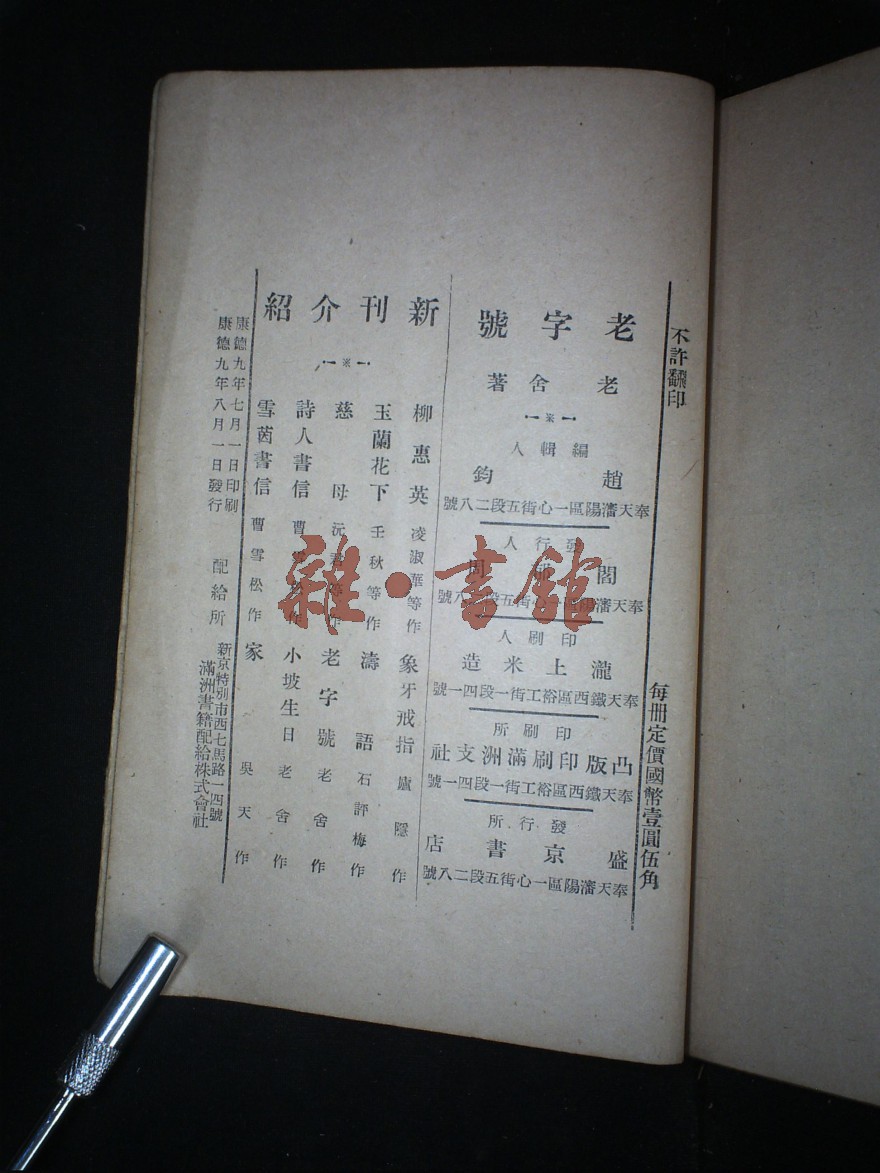 不許翻印
每冊定價國幣壹圓伍角
老字號
老舍著
編輯人
趙鈞
奉天瀋陽區一心街五段二八號
發行人
閻
奉天瀋陽區一心街五段二八號
印刷人
瀧上米造
奉天鐵西區裕工街一段四一號
印刷所
凸版印刷滿洲支社
奉天鐵西區裕工街一段四一號
發行所
盛京書店
奉天瀋陽區一心街五段二八號
新刊介紹
柳惠英 凌淑華等作
象牙戒指 廬隱作
玉蘭花下 壬秋等作
濤語 石評梅作
慈母 沅君等作
老字號 老舍作
詩人書信 曹雪松作
小坡生日 老舍作
雪茵書信 曹雪松作
家 吳天作
康德九年七月一日印刷
康德九年八月一日發行
配給所
新京特別市西七馬路一四號
滿洲書籍配給株式會社
雜·書館